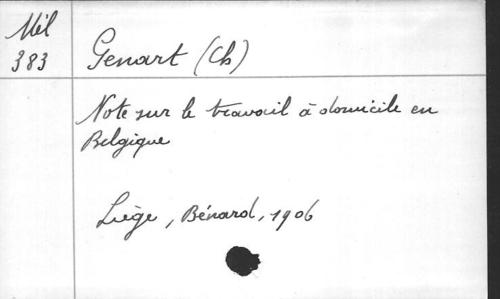 Mél
383
Genart (Ch)
Note sur le travail à domicile en
Belgique
Liège, Bénard, 1906